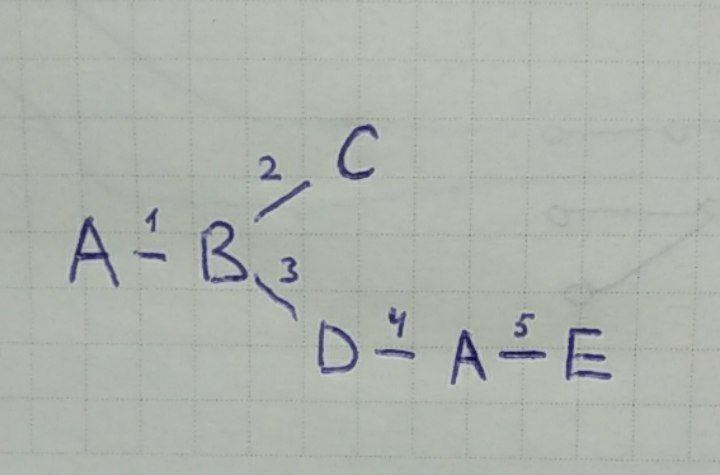 2 C
A 1 B 3
D 4 A 5 E